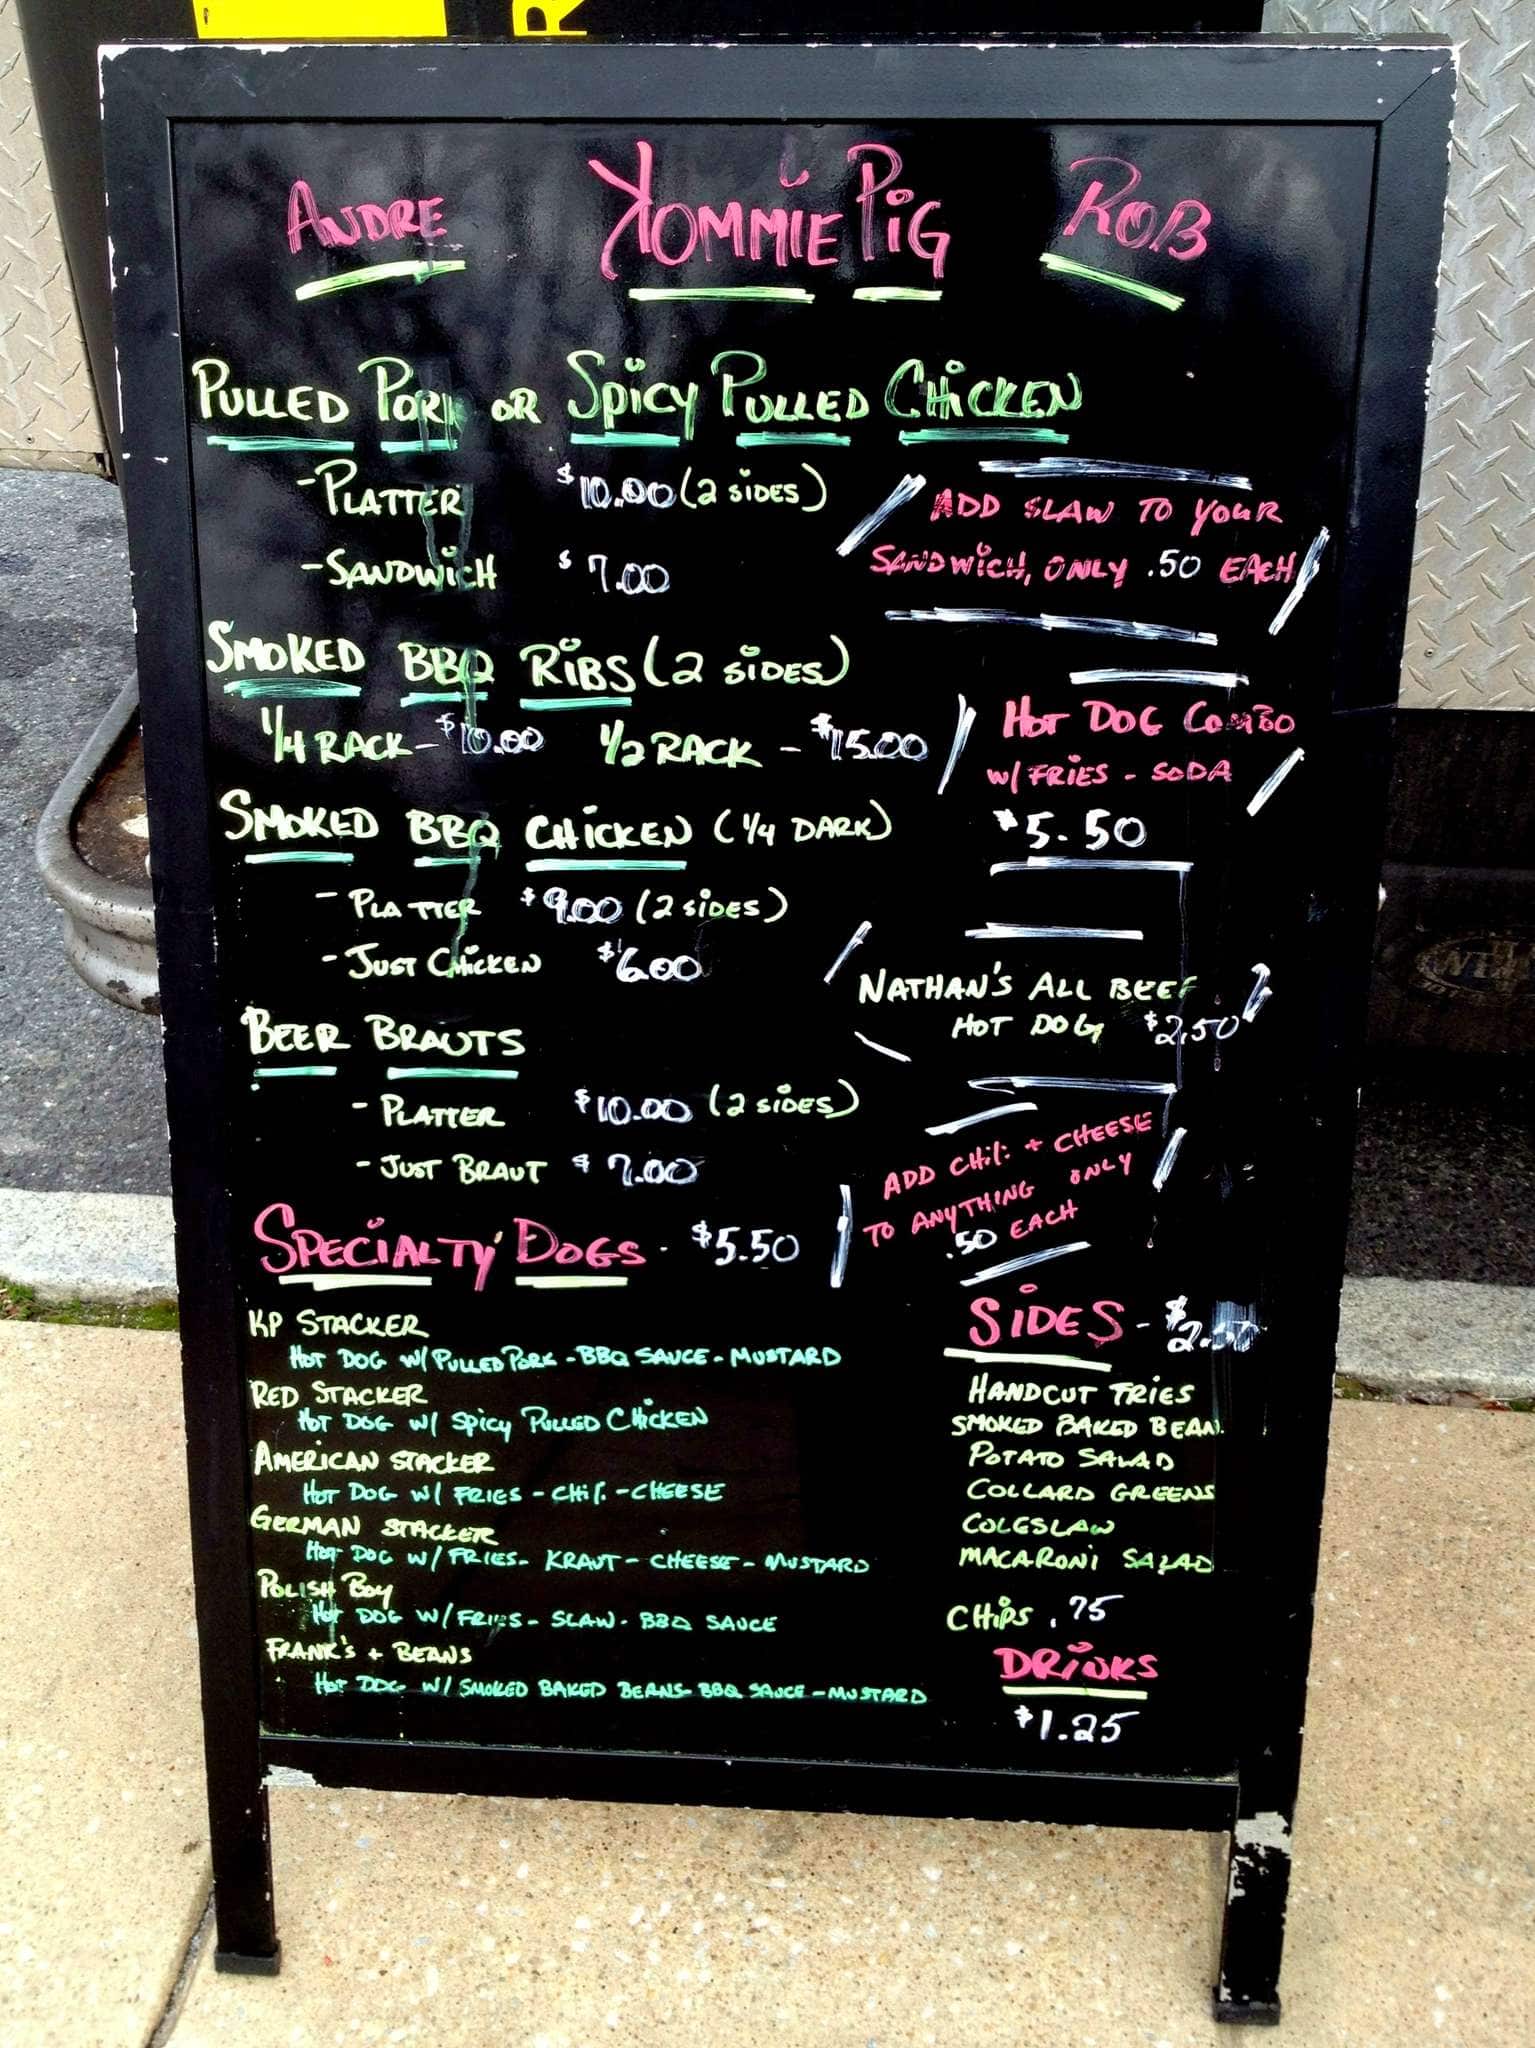 ANDRE KOMMIE PIG ROB
PULLED PORK OR SPICY PULLED CHICKEN
- PLATTER $10.00 (2 SIDES)
- SANDWICH $7.00
ADD SLAW TO YOUR
SANDWICH, ONLY .50 EACH
SMOKED BBQ RIBS (2 SIDES)
1/4 RACK - $10.00 1/2 RACK - $15.00
HOT DOG COMBO
W/ FRIES - SODA
$5.50
SMOKED BBQ CHICKEN (1/4 DARK)
- PLATTER $9.00 (2 SIDES)
- JUST CHICKEN $6.00
NATHAN'S ALL BEEF
HOT DOG $2.50
BEER BRAUTS
- PLATTER $10.00 (2 SIDES)
- JUST BRAUT $7.00
ADD CHILI + CHEESE
TO ANYTHING ONLY
.50 EACH
SPECIALTY DOGS - $5.50
KP STACKER
HOT DOG W/ PULLED PORK - BBQ SAUCE - MUSTARD
RED STACKER
HOT DOG W/ SPICY PULLED CHICKEN
AMERICAN STACKER
HOT DOG W/ FRIES - CHILI - CHEESE
GERMAN STACKER
HOT DOG W/ FRIES - KRAUT - CHEESE - MUSTARD
POLISH BOY
HOT DOG W/ FRIES - SLAW - BBQ SAUCE
FRANK'S + BEANS
HOT DOG W/ SMOKED BAKED BEANS - BBQ SAUCE - MUSTARD
SIDES - $2.50
HANDCUT FRIES
SMOKED BAKED BEAN
POTATO SALAD
COLLARD GREENS
COLESLAW
MACARONI SALAD
CHIPS .75
DRINKS
$1.25